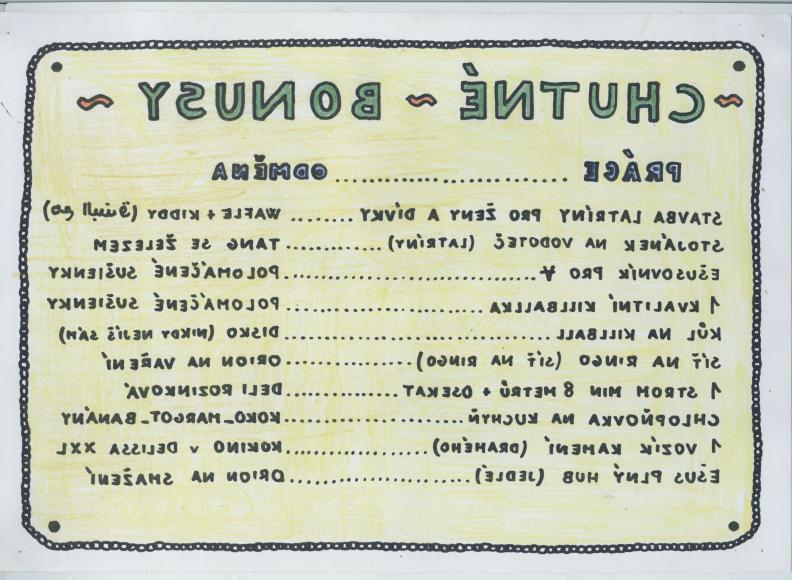 ~ CHUTNÉ ~ BONUSY ~
PRÁCE .......................... ODMĚNA
STAVBA LATRÍNY PRO ŽENY A DÍVKY ........ WAFLE + KIDDY
STOJÁNEK NA VODOTEČ (LATRÍNY) ............ TANG SE ŽELEZEM
EŠUSOVNÍK PRO ∀ ............................... POLOMÁČENÉ SUŠIENKY
1 KVALITNÍ KILLBALLKA ........................ POLOMÁČENÉ SUŠIENKY
KŮL NA KILLBALL ................................. DISKO (NIKDY NEJÍŠ SÁM)
SÍŤ NA RINGO (SÍŤ NA RINGO) ................ ORION NA VAŘENÍ
1 STROM MIN 8 METRŮ + OSEKAT ............... DELI ROZINKOVÁ
CHLOPŇOVKA NA KUCHYŇ ....................... KOKO_MARGOT_BANÁNY
1 VOZÍK KAMENÍ (DRAHÉHO) ................. KOKINO V DELISSA XXL
EŠUS PLNÝ HUB (JEDLÉ) ....................... ORION NA SMAŽENÍ